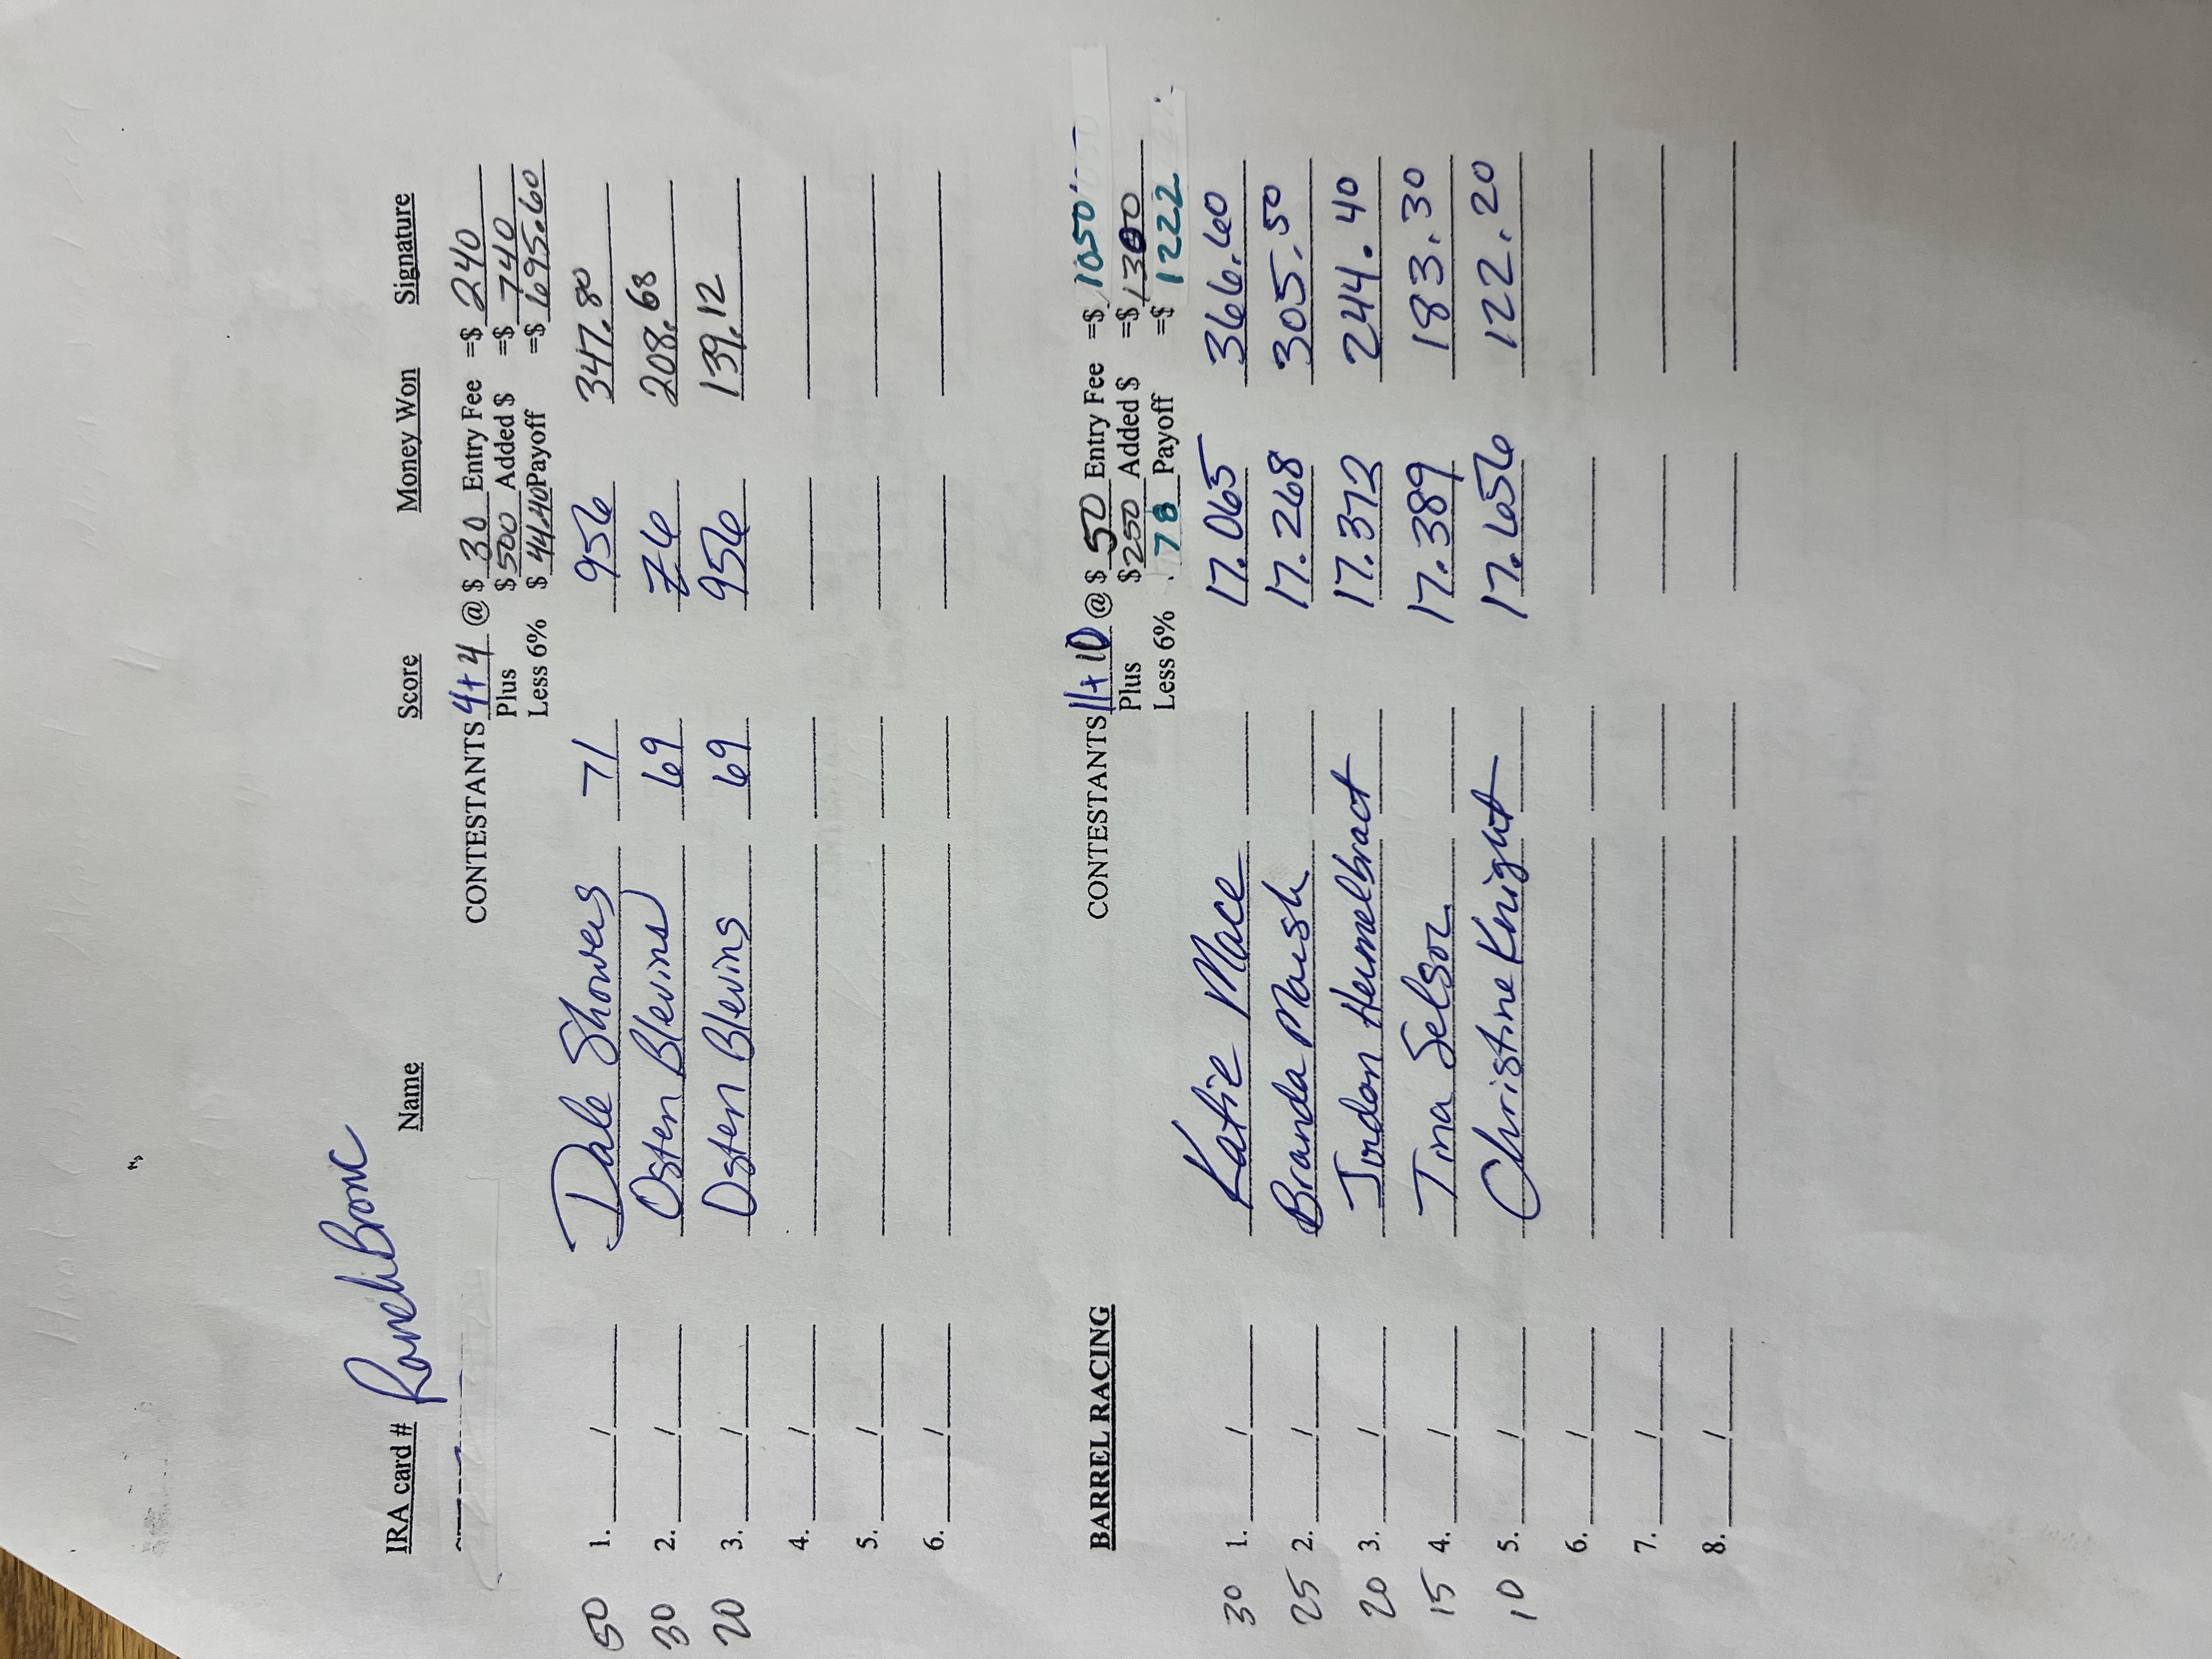 IRA card # Name Score Money Won Signature
Ranch Bronc
CONTESTANTS 4+4 @ $ 30 Entry Fee =$ 240
Plus $ 500 Added $ =$ 740
Less 6% $ 44.40 Payoff =$ 695.60
50 1. / Dale Showers 71 956 347.80
30 2. / Osten Blevins 69 76 208.68
20 3. / Osten Blevins 69 956 139.12
4. /
5. /
6. /
BARREL RACING CONTESTANTS 11+10 @ $ 50 Entry Fee =$ 1050
Plus $ 250 Added $ =$ 1300
Less 6% 78 Payoff =$ 1222
30 1. / Katie Mace 17.065 366.60
25 2. / Branda Marsh 17.268 305.50
20 3. / Jordan 17.372 244.40
15 4. / Tina Selsor 17.389 183.30
10 5. / Christine Knight 17.656 122.20
6. /
7. /
8. /